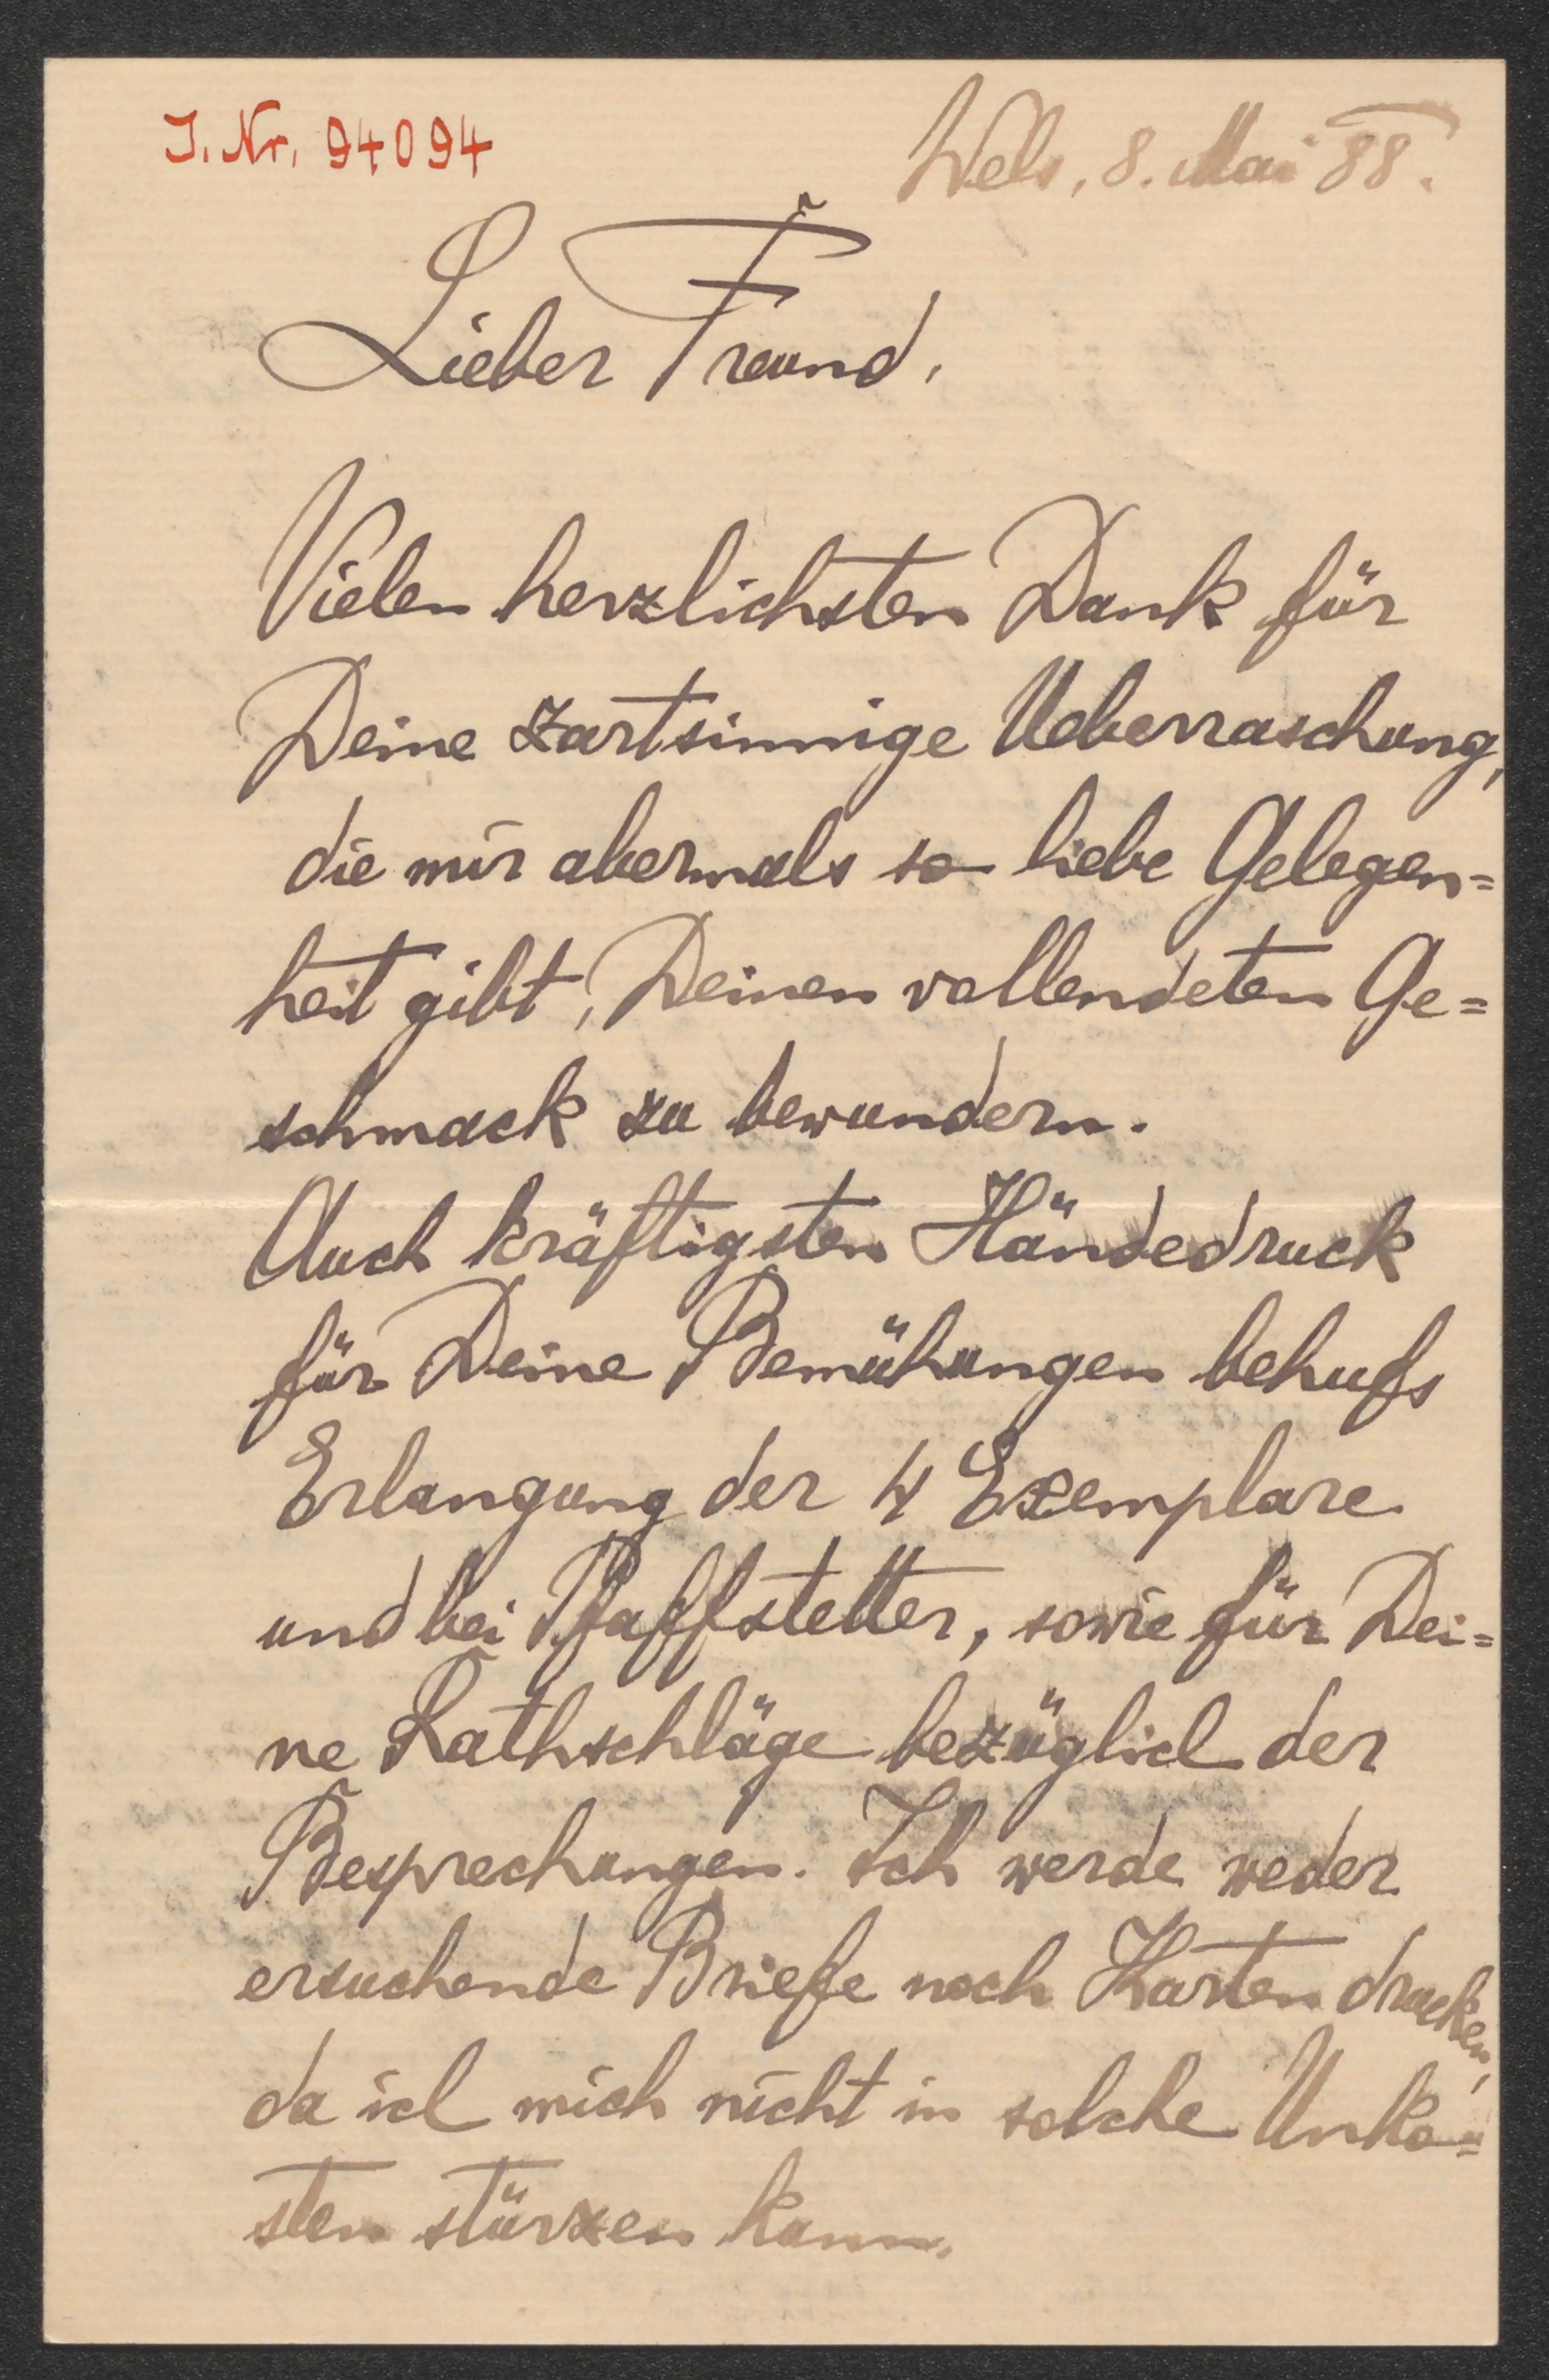 J. Nr. 94094
Wels, 8. Mai 88.
Lieber Freund,
Vielen herzlichsten Dank für
Deine zartsinnige Ueberraschung,
die mir abermals so liebe Gelegen=
heit gibt, Deinen vollendeten Ge=
schmack zu bewundern.
Auch kräftigsten Händedruck
für Deine Bemühungen behufs
Erlangung der 4 Exemplare
und bei Pfaffstetter, sowie für Dei=
ne Rathschläge bezüglich der
Besprechungen. Ich werde weder
ersuchende Briefe noch Karten drucken,
da ich mich nicht in solche Unko=
sten stürzen kann.